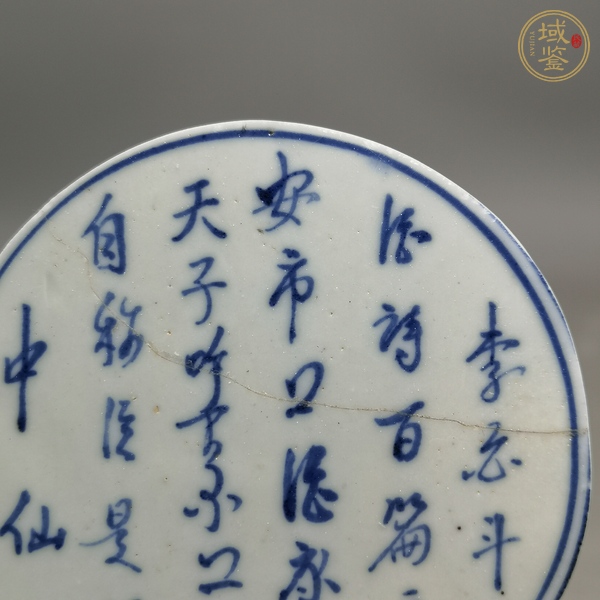 李白斗
酒詩百篇
安市上酒家
天子呼来不上
自稱臣是
中仙
域鉴
YUJIAN